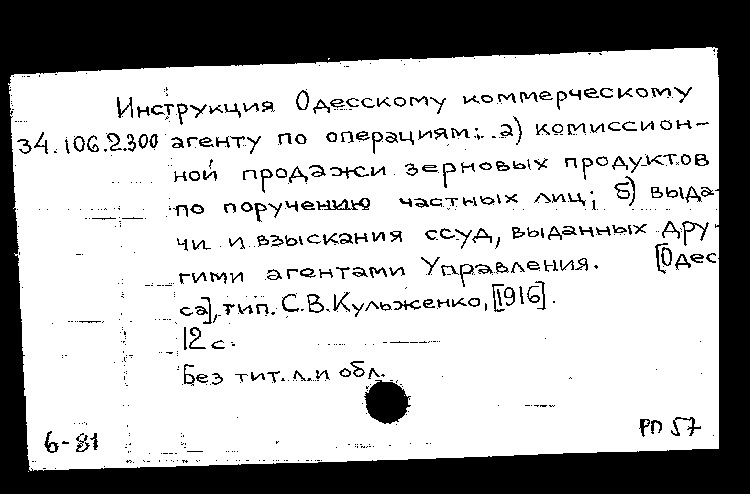 Инструкция Одесскому коммерческому
34.106.2.300 агенту по операциям: а) комиссион-
ной продажи зерновых продуктов
по поручению частных лиц; б) выда-
чи и взыскания ссуд, выданных дру-
гими агентами Управления. [Одес-
са], тип. С.В.Кульженко, [1916].
12 с.
Без тит. л. и обл.
6-81
РП 57